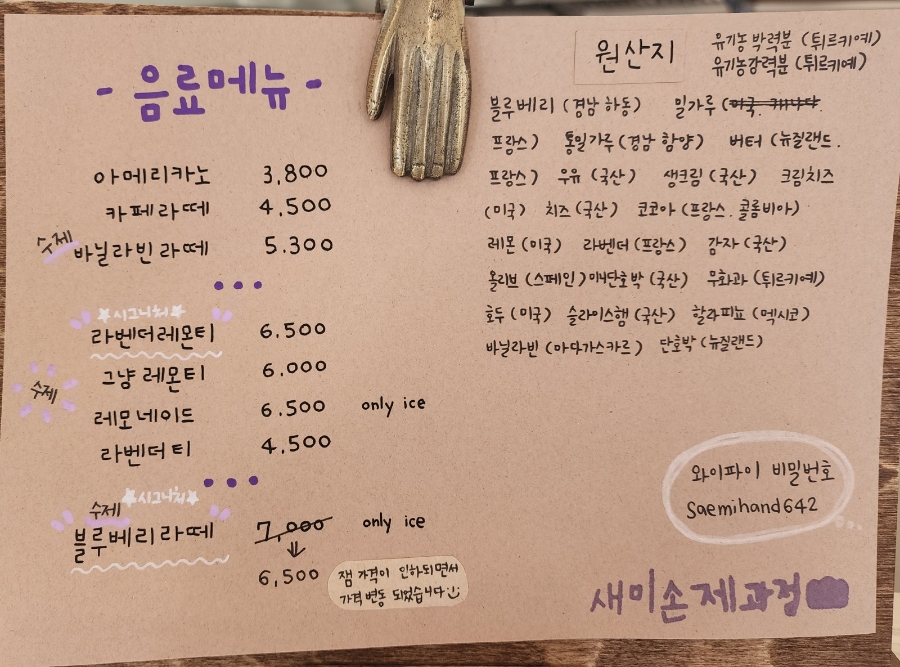 - 음료메뉴 -
아메리카노 3,800
카페라떼 4,500
수제 바닐라빈 라떼 5.300
★시그니처★
라벤더레몬티 6,500
수제
그냥 레몬티 6,000
레모네이드 6.500 only ice
라벤더 티 4,500
★시그니처★
수제
블루베리라떼 7,000 only ice
6,500
잼 가격이 인하되면서
가격 변동 되었습니다
원산지
유기농 박력분 (튀르키예)
유기농강력분 (튀르키예)
블루베리 (경남 하동) 밀가루 (미국. 캐나다.
프랑스) 통밀가루 (경남 함양) 버터 (뉴질랜드.
프랑스) 우유 (국산) 생크림 (국산) 크림치즈
(미국) 치즈 (국산) 코코아 (프랑스. 콜롬비아)
레몬 (미국) 라벤더 (프랑스) 감자 (국산)
올리브 (스페인) 미니단호박 (국산) 무화과 (튀르키예)
호두 (미국) 슬라이스햄 (국산) 할라피뇨 (멕시코)
바닐라빈 (마다가스카르) 단호박 (뉴질랜드)
와이파이 비밀번호
Saemihand642
새미손제과점